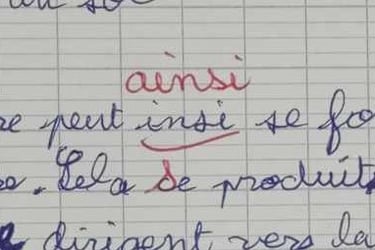 ainsi
re peut insi se fo
e. Cela se produit
dirigent vers la